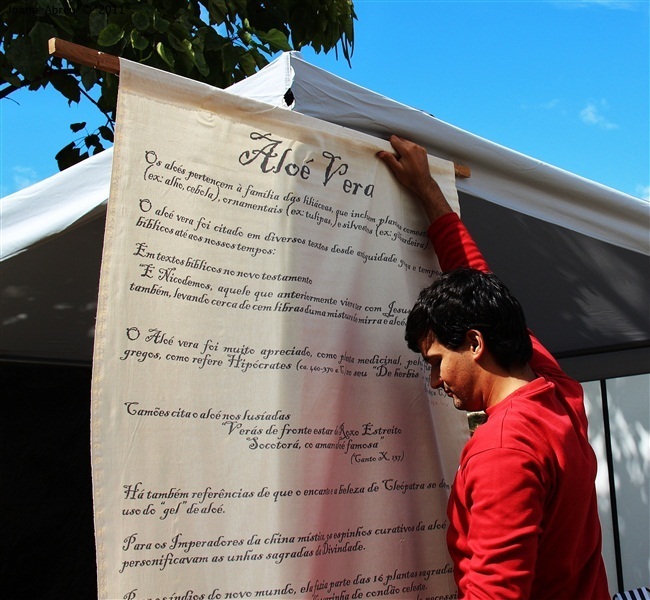 2011
Aloé Vera
Os aloés pertencem à família das liliáceas, que incluem plantas
(ex: alho, cebola), ornamentais (ex: tulipas) e silvestres (ex:
O aloé vera foi citado em diversos textos desde
bíblicos até aos nossos tempos:
Em textos bíblicos no novo testamento
"E Nicodemos, aquele que anteriormente viera ter com Jesus
também, levando cerca de cem libras duma mistura de mirra e aloé
O Aloé vera foi muito apreciado, como planta medicinal, pelos
gregos, como refere Hipócrates (ca. 460-370 a.C.) no seu "De herbis
Camões cita o aloé nos lusíadas
"Verás defronte estar do Roxo Estreito
Socotorá, co amaro aloé famosa"
(Canto X, 137)
Há também referências de que o encanto e beleza de Cleópatra se
uso do "gel" de aloé.
Para os Imperadores da china os espinhos curativos da aloé
personificavam as unhas sagradas da Divindade.
índios do novo mundo, ela fazia parte das 16 plantas sagradas
de condão celeste.